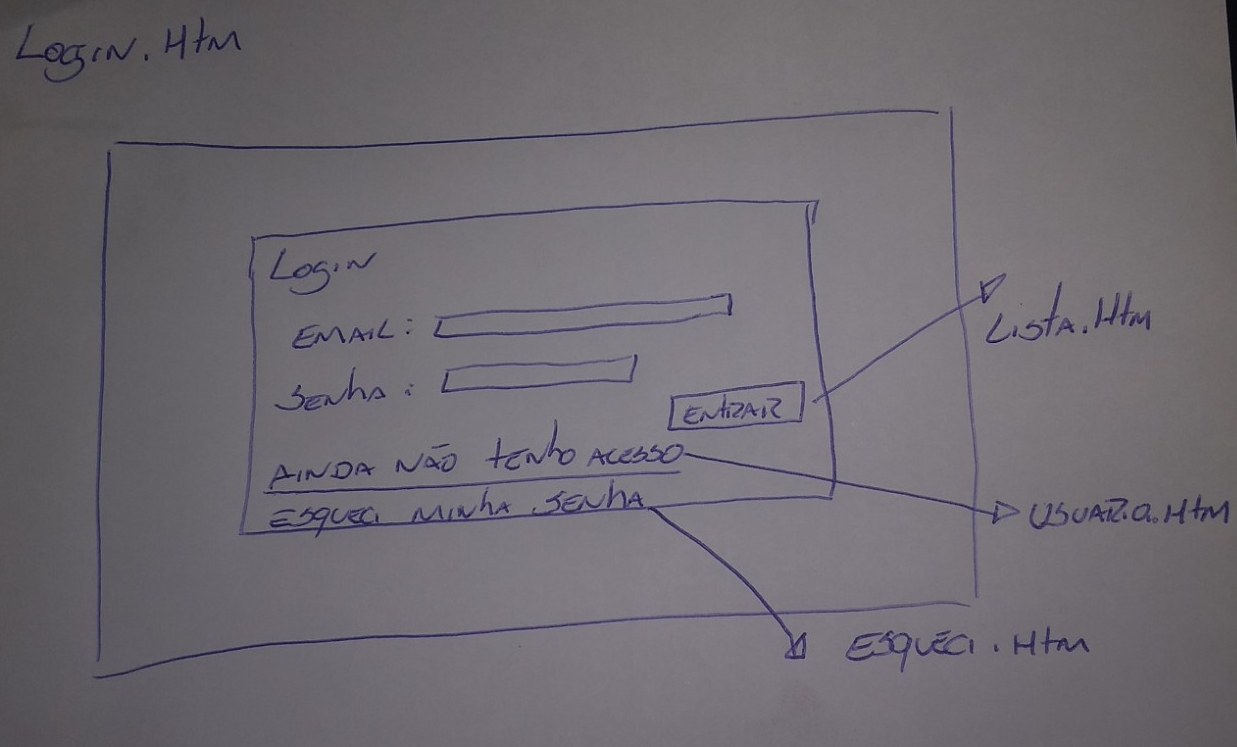 Login.Htm
Login
EMAIL:
Lista.Htm
SENHA:
ENTRAR
AINDA NÃO TENHO ACESSO
ESQUECI MINHA SENHA
USUARIO.HTM
ESQUECI.HTM